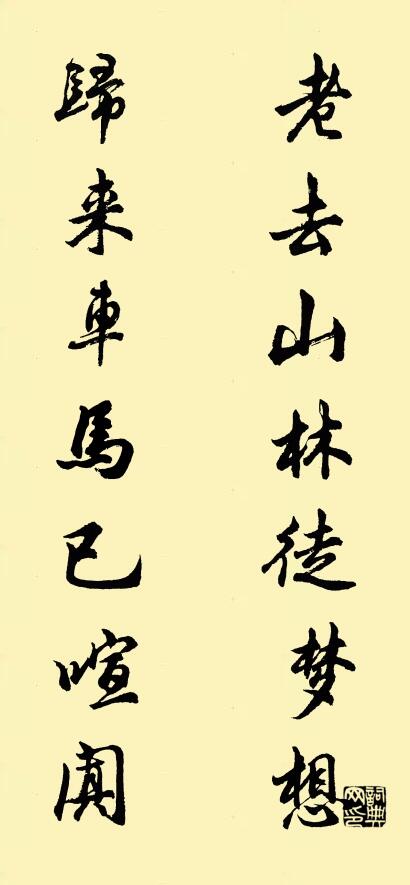 老去山林徒梦想
歸来車馬已喧闐
詞典
网印